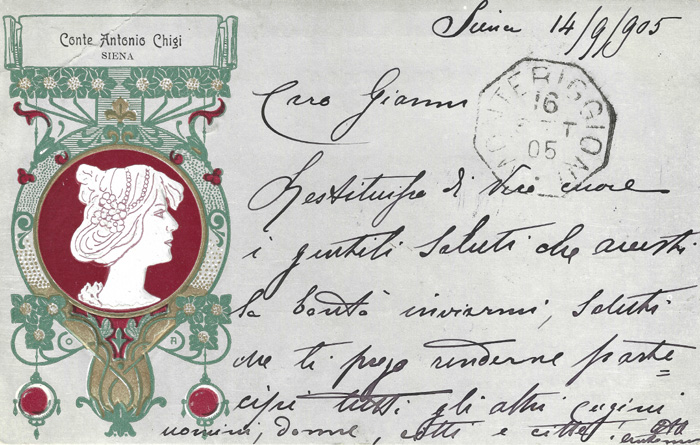 Conte Antonio Chigi
SIENA
Siena 14/9/905
MONTERIGGIONI
16
SET
05
Caro Gianni
Restituisco di vero cuore
i gentili saluti che avesti
la bontà inviarmi, saluti
che ti prego renderne parte=
cipi tutti gli altri cugini
uomini, donne, cotti e